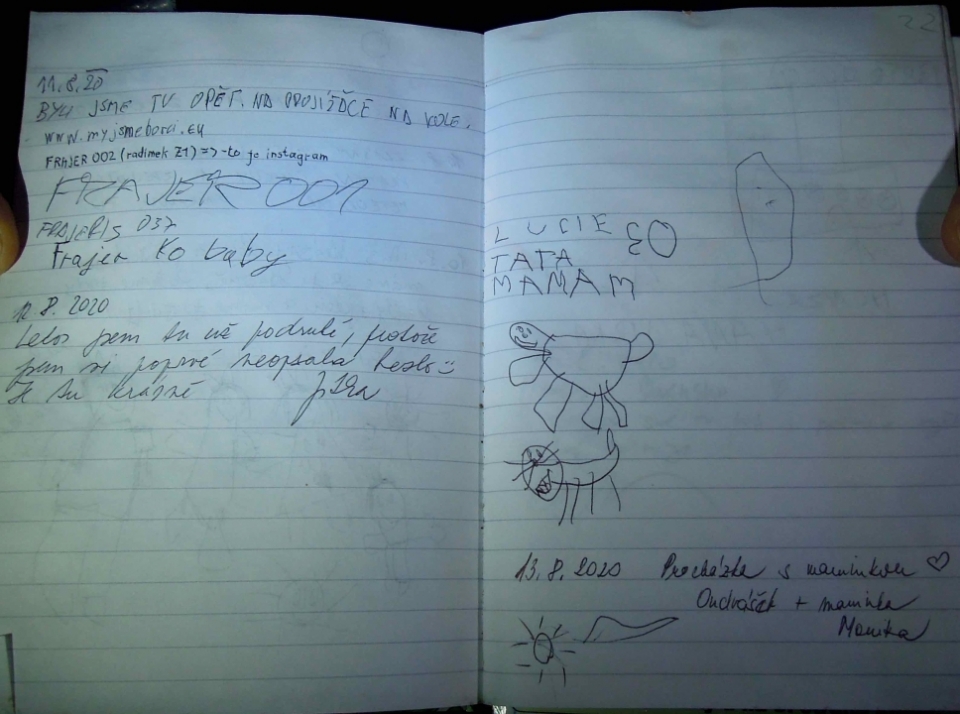 11.8.20
BYLI JSME TU OPĚT. NA PROJÍŽĎCE NA KOLE.
www.myjsmeborci.eu
FRAJER 002 (radimek Z1) => -to je instagram
FRAJER 001
FRAJERIS 037
Frajer Ko baby
12.8.2020
Letos jsem tu už podruhé, protože
jsem si poprvé neopsala heslo :)
Je tu krásně
22
LUCIE
TATA
MAMAM
13.8.2020 Procházka s maminkou ♡
Ondrášek + maminka
Monika